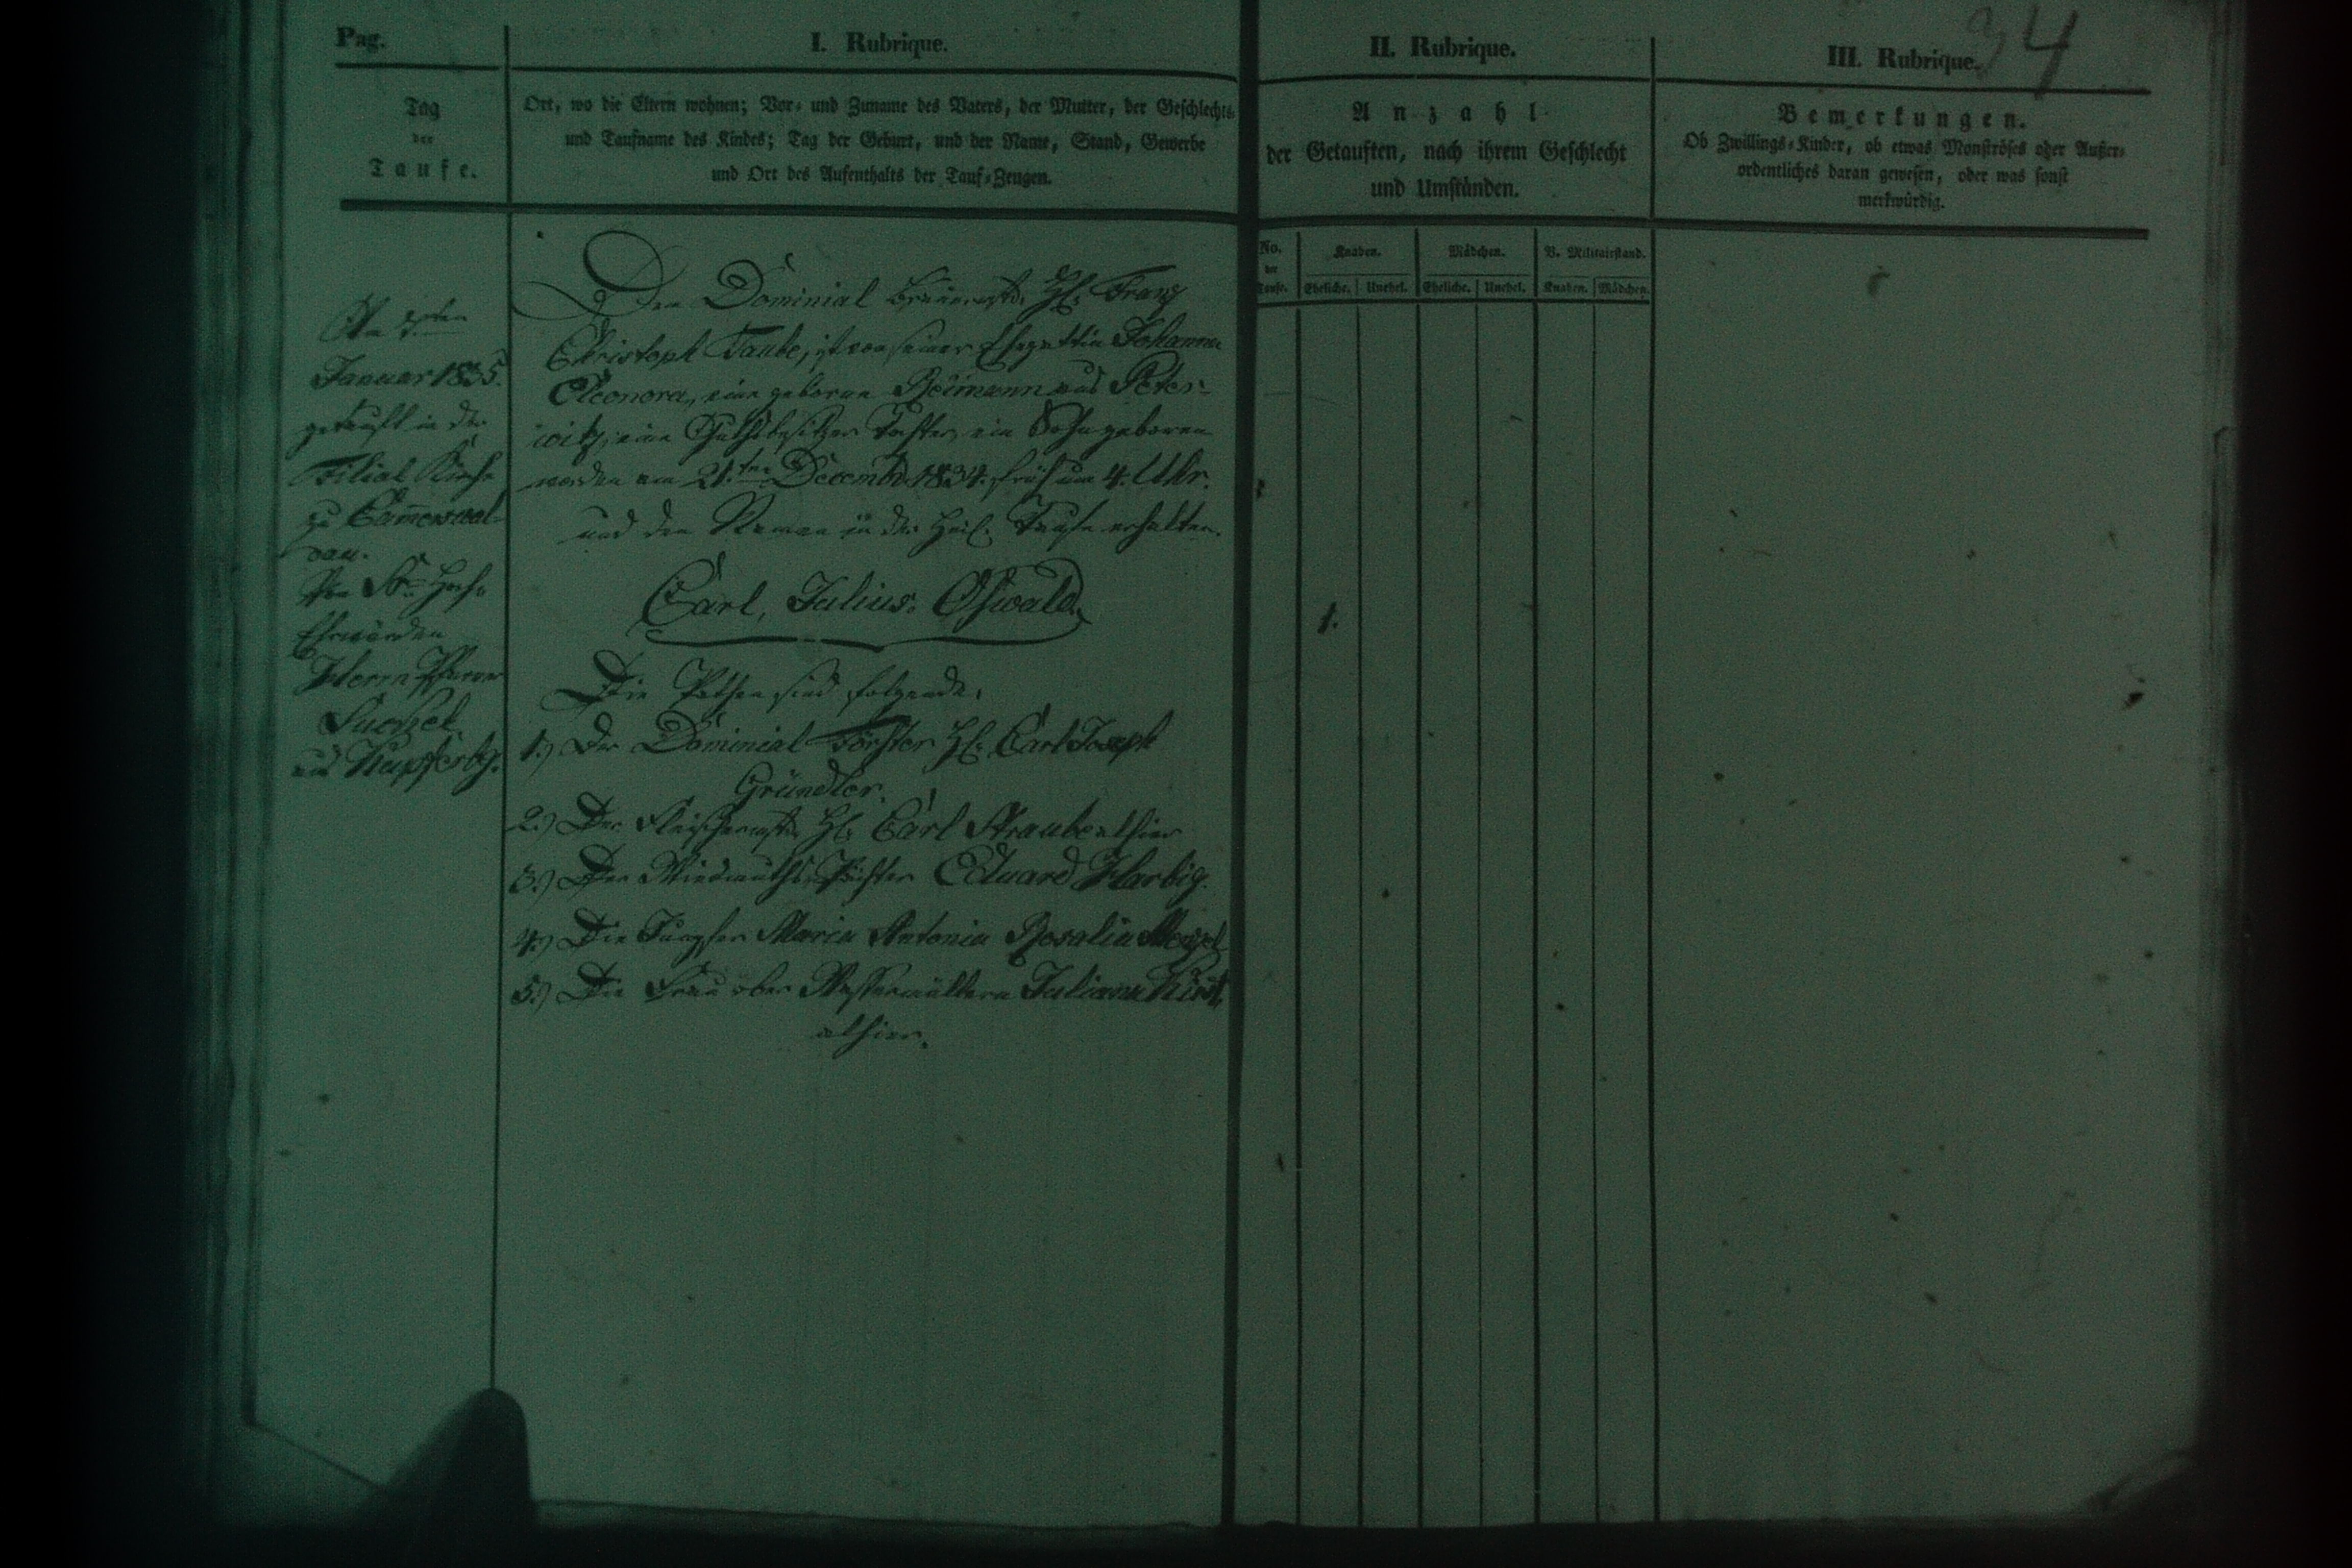 Pag.
I. Rubrique.
II. Rubrique.
III. Rubrique.
34
Tag
der
Taufe.
Ort, wo die Eltern wohnen; Vor- und Zuname des Vaters, der Mutter, der Geschlechts-
und Taufname des Kindes; Tag der Geburt, und der Name, Stand, Gewerbe
und Ort des Aufenthalts der Tauf-Zeugen.
Anzahl
der Getauften, nach ihrem Geschlecht
und Umständen.
Bemerkungen.
Ob Zwillings-Kinder, ob etwas Monströses oder Außer-
ordentliches daran gewesen, oder was sonst
merkwürdig.
No.
der
Taufe.
Knaben.
Mädchen.
V. Militairstand.
Eheliche. Unehel. Eheliche. Unehel. Knaben. Mädchen.
Januar 1835.
getauft in der
Filial Kirche
zu Cam̄erswal-
dau.
Von Sr. Hoch-
Ehrwürden
Herrn Pfarrer
aus Kupferbg.
Dem Dominial Brauermstr. H. Franz
Christoph Taube, ist von seiner Ehegattin Johanna
Eleonora, eine geborne Reimann aus Peter-
witz, eine Guthsbesitzer Tochter, ein Sohn geboren
worden am 21.ten Decembr 1834. früh um 4. Uhr.
und den Namen in der Heil. Taufe erhalten.
Carl, Julius, Oswald.
1.
Die Pathen sind folgende.
1.) Der Dominial Förster H. Carl Joseph
Gründler.
2.) Der Fleischermstr. H. Carl Straube alhier
3.) Der Wiedmuths Pächter Eduard Harbig.
4.) Die Jungfer Maria Antonia Rosalia
5.) Die Frau ober Wassermüllern Juliana
alhier.